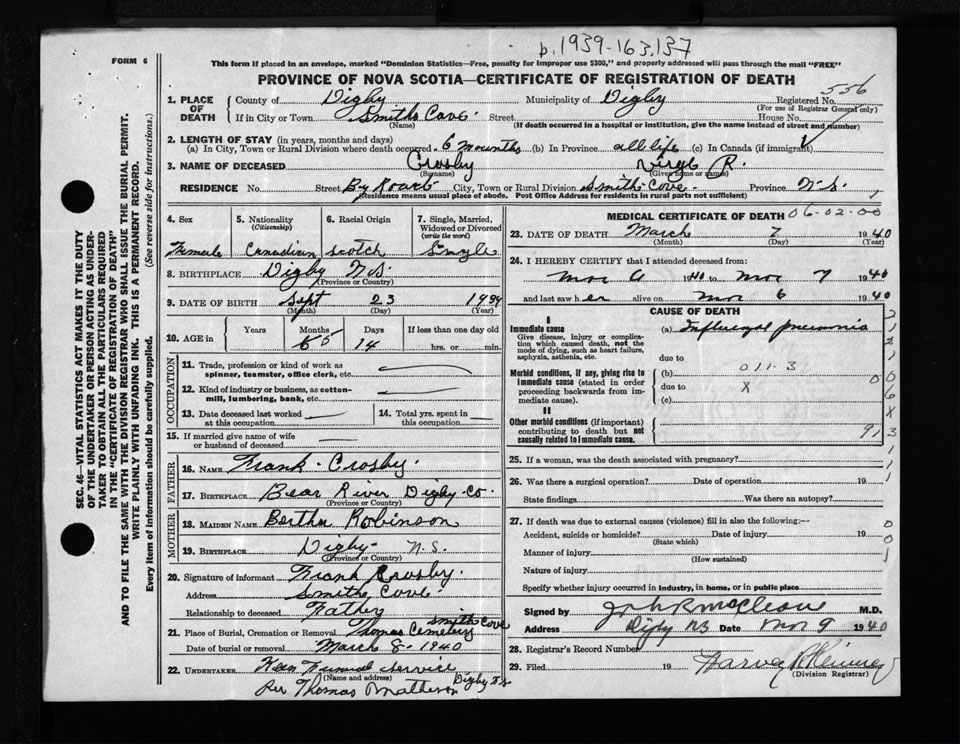 p. 1939-163,137
FORM 6
This form if placed in an envelope, marked "Dominion Statistics—Free, penalty for improper use $300," and properly addressed will pass through the mail "FREE"
PROVINCE OF NOVA SCOTIA—CERTIFICATE OF REGISTRATION OF DEATH
1. PLACE OF DEATH
County of Digby Municipality of Digby Registered No. 556
(For use of Registrar General only)
If in City or Town Smiths Cove. Street House No.
(Name) (If death occurred in a hospital or institution, give the name instead of street and number)
2. LENGTH OF STAY (in years, months and days)
(a) In City, Town or Rural Division where death occurred 6 mounths (b) In Province all life (c) In Canada (if immigrant)
3. NAME OF DECEASED Crosby R.
(Surname) (Given name or names)
RESIDENCE No. Street By Roard City, Town or Rural Division Smith Cove. Province N.S.
(Residence means usual place of abode. Post Office Address for residents in rural parts not sufficient)
4. Sex 5. Nationality 6. Racial Origin 7. Single, Married,
(Citizenship) Widowed or Divorced
(write the word)
Female Canadian Scotch Single
8. BIRTHPLACE Digby N.S.
(Province or Country)
9. DATE OF BIRTH Sept 23 19
(Month) (Day) (Year)
10. AGE in Years Months Days If less than one day old
5 14 hrs. or min.
OCCUPATION
11. Trade, profession or kind of work as
spinner, teamster, office clerk, etc.
12. Kind of industry or business, as cotton-
mill, lumbering, bank, etc.
13. Date deceased last worked
at this occupation
14. Total yrs. spent in
this occupation
15. If married give name of wife
or husband of deceased
FATHER
16. NAME Frank Crosby.
17. BIRTHPLACE Bear River Digby Co.
(Province or Country)
MOTHER
18. MAIDEN NAME Bertha Robinson
19. BIRTHPLACE Digby N.S.
(Province or Country)
20. Signature of informant Frank Crosby.
Address Smiths Cove.
Relationship to deceased Father
21. Place of Burial, Cremation or Removal Thomas Cemetery Smith Cove
Date of burial or removal March 8-1940
22. UNDERTAKER Funeral Service
(Name and address)
Per Thomas Matheson Digby N.S.
MEDICAL CERTIFICATE OF DEATH 06-02-00
23. DATE OF DEATH March 7 1940
(Month) (Day) (Year)
24. I HEREBY CERTIFY that I attended deceased from:
Mar 6 1940 to Mar 7 1940
and last saw her alive on Mar 6 1940
CAUSE OF DEATH
I
Immediate cause
Give disease, injury or complica-
tion which caused death, not the
mode of dying, such as heart failure,
asphyxia, asthenia, etc.
(a) Influenzal pneumonia
due to
Morbid conditions, if any, giving rise to
immediate cause (stated in order
proceeding backwards from im-
mediate cause).
(b) 011-3
due to X
(c)
II
Other morbid conditions (if important)
contributing to death but not
causally related to immediate cause.
25. If a woman, was the death associated with pregnancy?
26. Was there a surgical operation? Date of operation 19
State findings Was there an autopsy?
27. If death was due to external causes (violence) fill in also the following:—
Accident, suicide or homicide? Date of injury 19
(State which)
Manner of injury
(How sustained)
Nature of injury
Specify whether injury occurred in industry, in home, or in public place
Signed by M.D.
Address Digby NS Date Mar 9 1940
28. Registrar's Record Number
29. Filed 19 Harvey
(Division Registrar)
SEC. 46—VITAL STATISTICS ACT MAKES IT THE DUTY
OF THE UNDERTAKER OR PERSON ACTING AS UNDER-
TAKER TO OBTAIN ALL THE PARTICULARS REQUIRED
IN THE "CERTIFICATE OF REGISTRATION OF DEATH"
AND TO FILE THE SAME WITH THE DIVISION REGISTRAR WHO SHALL ISSUE THE BURIAL PERMIT.
WRITE PLAINLY WITH UNFADING INK. THIS IS A PERMANENT RECORD.
Every item of information should be carefully supplied. (See reverse side for instructions.)